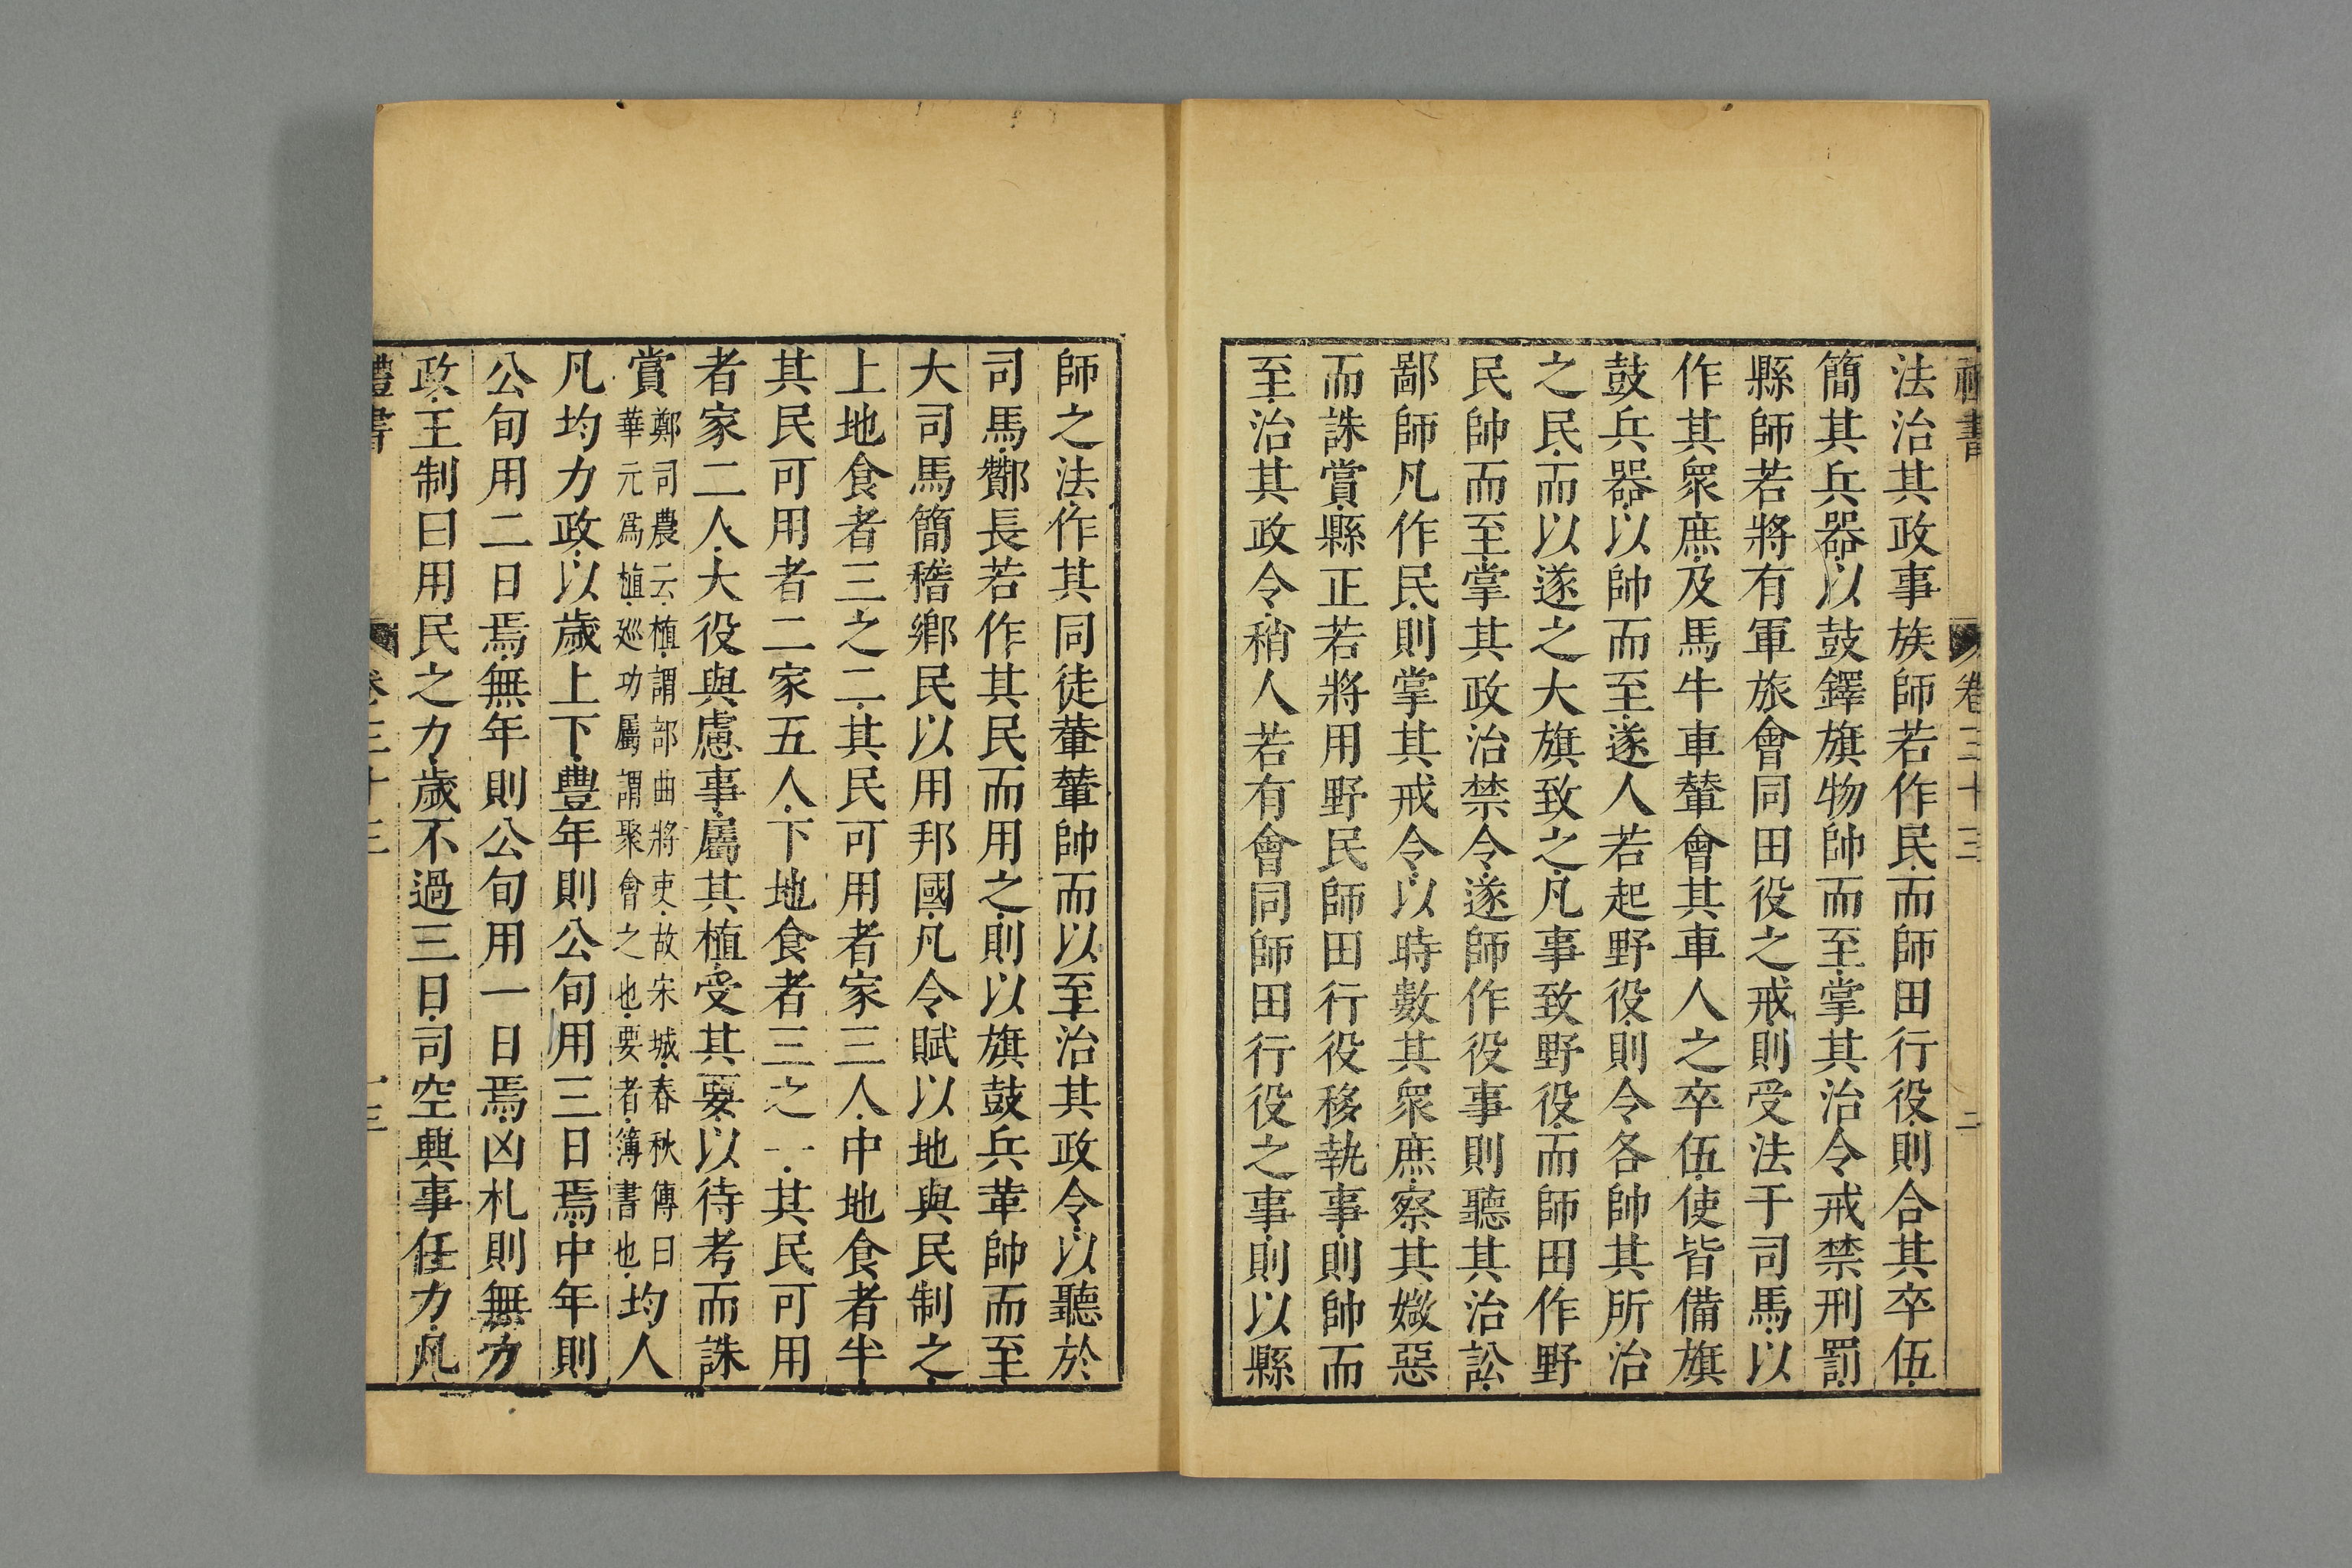 禮書 卷三十三 二
法治其政事族師若作民而師田行役則合其卒伍
簡其兵器以鼓鐸旗物帥而至掌其治令戒禁刑罰
縣師若將有軍旅會同田役之戒則受法于司馬以
作其衆庶及馬牛車輦會其車人之卒伍使皆備旗
鼓兵器以帥而至遂人若起野役則令各帥其所治
之民而以遂之大旗致之凡事致野役而師田作野
民帥而至掌其政治禁令遂師作役事則聽其治訟
鄙師凡作民則掌其戒令以時數其衆庶察其媺惡
而誅賞縣正若將用野民師田行役移執事則帥而
至治其政令稍人若有會同師田行役之事則以縣
師之法作其同徒輂輦帥而以至治其政令以聽於
司馬酇長若作其民而用之則以旗鼓兵革帥而至
大司馬簡稽鄉民以用邦國凡令賦以地與民制之
上地食者三之二其民可用者家三人中地食者半
其民可用者二家五人下地食者三之一其民可用
者家二人大役與慮事屬其植受其要以待考而誅
賞鄭司農云植謂部曲將吏故宋城春秋傳曰華元爲植巡功屬謂聚會之也要者簿書也均人
凡均力政以歲上下豐年則公旬用三日焉中年則
公旬用二日焉無年則公旬用一日焉凶札則無力
政王制曰用民之力歲不過三日司空興事任力凡
禮書 卷三十三